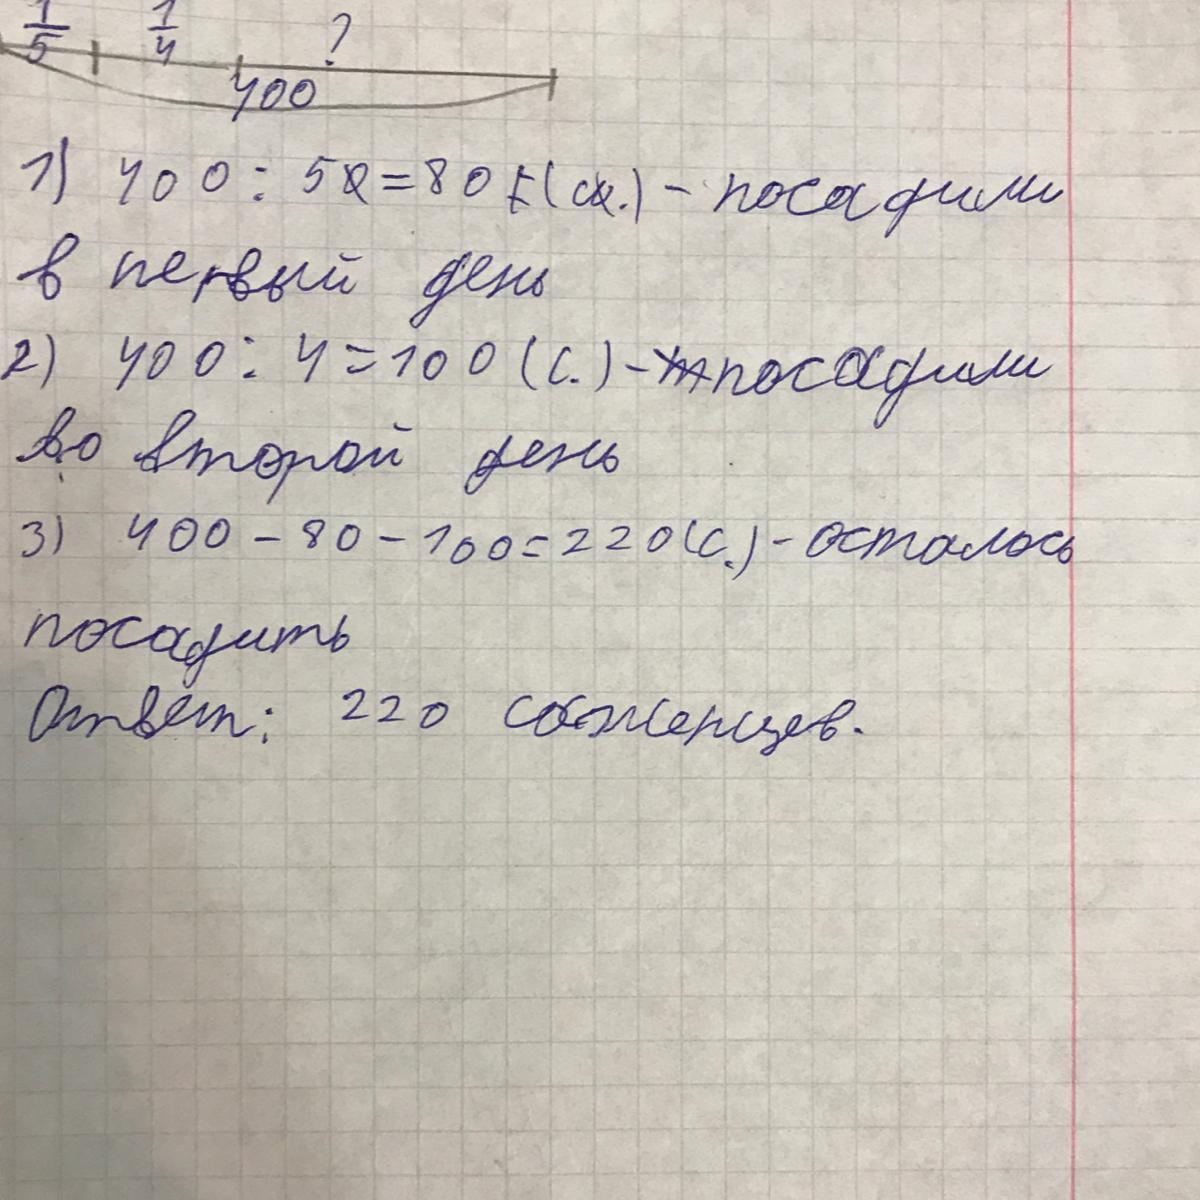 1/5 1/4 ?
400
1) 400 : 5 = 80 (с.) - посадили
в первый день
2) 400 : 4 = 100 (с.) - посадили
во второй день
3) 400 - 80 - 100 = 220 (с.) - осталось
посадить
Ответ: 220 саженцев.